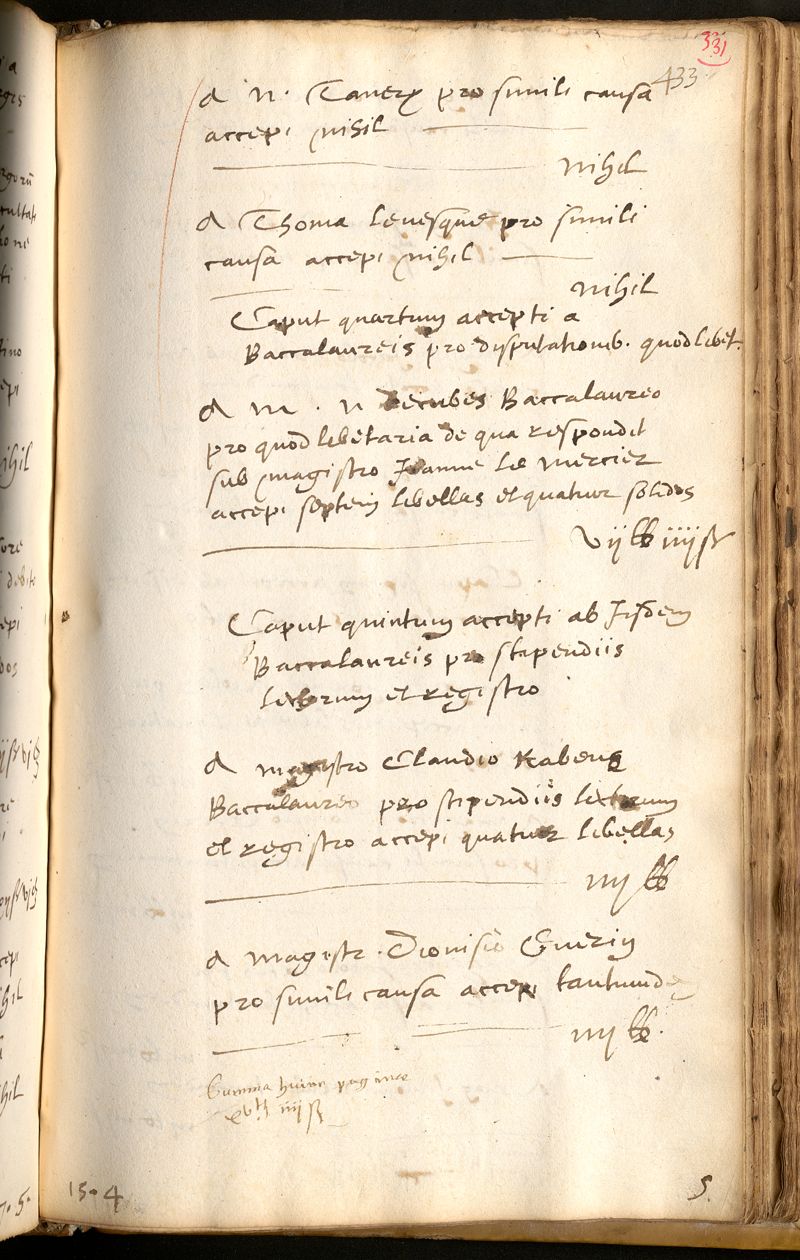 331
433
A N. Tanery pro simili causa
accepi nihil
nihil
A Thoma Levesque pro simili
causa accepi nihil
nihil
Caput quartum accepti a
Baccalaureis pro disputationib. quodlibet.
A M. N Decubes Baccalaureo
pro quodlibetaria de qua respondit
sub magistro Joanne Le Mercier
accepi septem libellas et quatuor solidos
vij lb iiij ß
Caput quintum accepti ab Iisdem
Baccalaureis pro stipendiis
lectorum et registro
A magistro Claudio
Baccalaureo pro stipendiis lectorum
et registro accepi quatuor libellas
iiij lb
A magistr. Dionisio Guerin
pro simili causa accepi tantumdem
iiij lb.
Summa huius paginae
xv lb iiij ß
15.4
5.